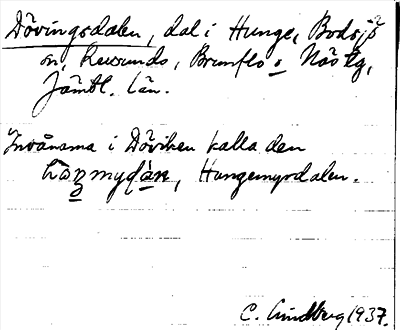 Dövingsdalen, dal i Hunge, Bodsjö
sn, Revsunds, Brunflo o Näs tg,
Jämtl. län.
Invånarna i Döviken kalla den
Hungemyrdalen.
C. Lindberg 1937.